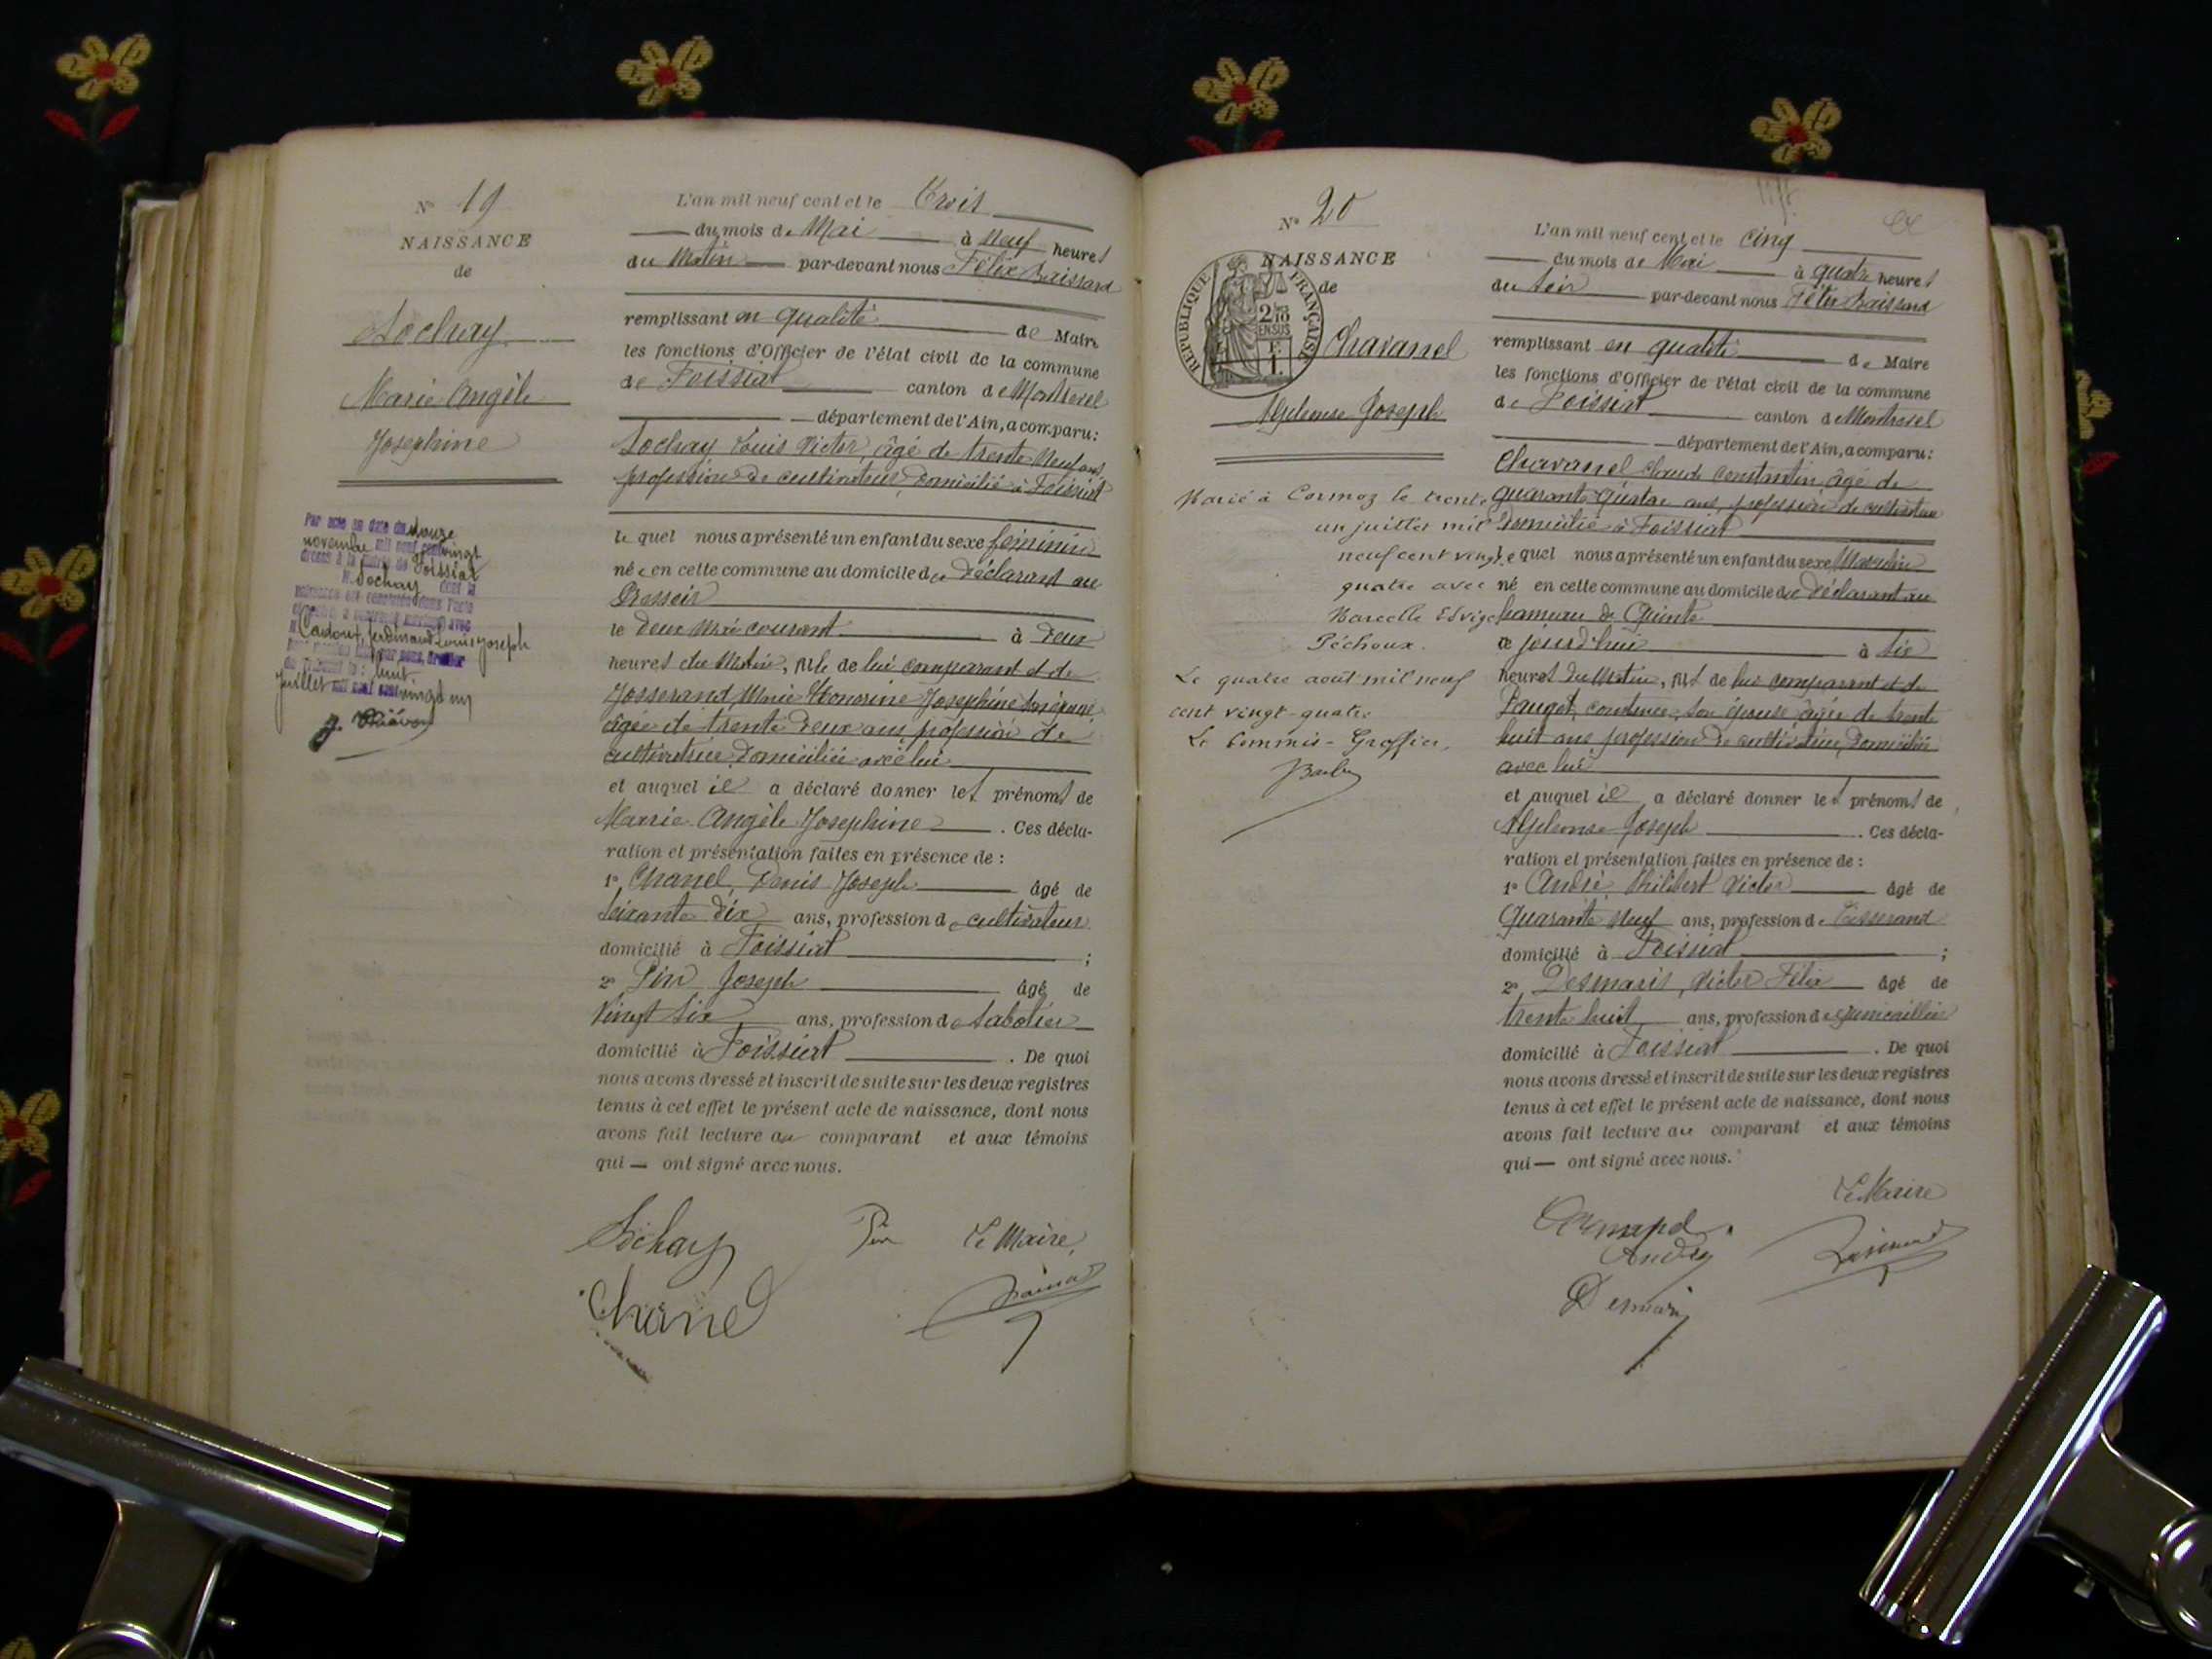 N° 19
NAISSANCE
de
Sochay
Marie Angèle
Josephine
Par acte en date du douze
novembre mil neuf cent vingt
dressé à la mairie de Foissiat
M. Sochay dont la
naissance est constatée dans l'acte
ci-contre a contracté mariage avec
M. Cadoux, Ferdinand Louis Joseph
huit
Juillet mil neuf cent vingt un
L'an mil neuf cent et le Trois
du mois de Mai à Neuf heures
du Matin par-devant nous Félix
remplissant en qualité de Maire
les fonctions d'Officier de l'état civil de la commune
de Foissiat canton de Montrevel
département de l'Ain, a comparu:
Sochay Louis Victor, âgé de trente neuf ans
profession de cultivateur, domicilié à Foissiat
le quel nous a présenté un enfant du sexe féminin
née en cette commune au domicile du déclarant au
Pressoir
le deux Mai courant à deux
heures du Matin, fille de lui comparant et de
Josserand, Marie Honorine Josephine son épouse,
âgée de trente deux ans profession de
cultivatrice domiciliée avec lui
et auquel il a déclaré donner les prénoms de
Marie Angèle Josephine. Ces décla-
ration et présentation faites en présence de :
1° Chanel, Denis Joseph âgé de
soixante dix ans, profession de cultivateur
domicilié à Foissiat ;
2° Pin Joseph âgé de
Vingt six ans, profession de Sabotier
domicilié à Foissiat. De quoi
nous avons dressé et inscrit de suite sur les deux registres
tenus à cet effet le présent acte de naissance, dont nous
avons fait lecture au comparant et aux témoins
qui — ont signé avec nous.
Sochay Pin Le Maire,
Chanel
N° 20
NAISSANCE
de
RÉPUBLIQUE FRANÇAISE
2/10
EN SUS
Chavanel
Alphonse Joseph
Marié à Cormoz le trente
un juillet mil
neuf cent vingt
quatre avec
Marcelle Edvige
Péchoux.
Le quatre août mil neuf
cent vingt-quatre
Le Commis-Greffier,
L'an mil neuf cent et le cinq
du mois de Mai à quatre heures
du soir par-devant nous Félix
remplissant en qualité de Maire
les fonctions d'Officier de l'état civil de la commune
de Foissiat canton de Montrevel
département de l'Ain, a comparu:
Chavanel Claude Constantin âgé de
quarante quatre ans, profession de cultivateur
domicilié à Foissiat
le quel nous a présenté un enfant du sexe Masculin
né en cette commune au domicile du déclarant au
hameau de Quinte
ce jourd'hui à six
heures du Matin, fils de lui comparant et de
Pauget, Constance, son épouse âgée de trente
huit ans profession de cultivatrice, domiciliée
avec lui
et auquel il a déclaré donner les prénoms de
Alphonse Joseph. Ces décla-
ration et présentation faites en présence de :
1° André Philibert Victor âgé de
Quarante neuf ans, profession de Tisserand
domicilié à Foissiat ;
2° Desmaris, Victor Félix âgé de
trente huit ans, profession de quincaillier
domicilié à Foissiat. De quoi
nous avons dressé et inscrit de suite sur les deux registres
tenus à cet effet le présent acte de naissance, dont nous
avons fait lecture au comparant et aux témoins
qui — ont signé avec nous.
Le Maire
André